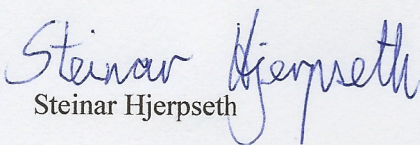 Steinar Hjerpseth
Steinar Hjerpseth